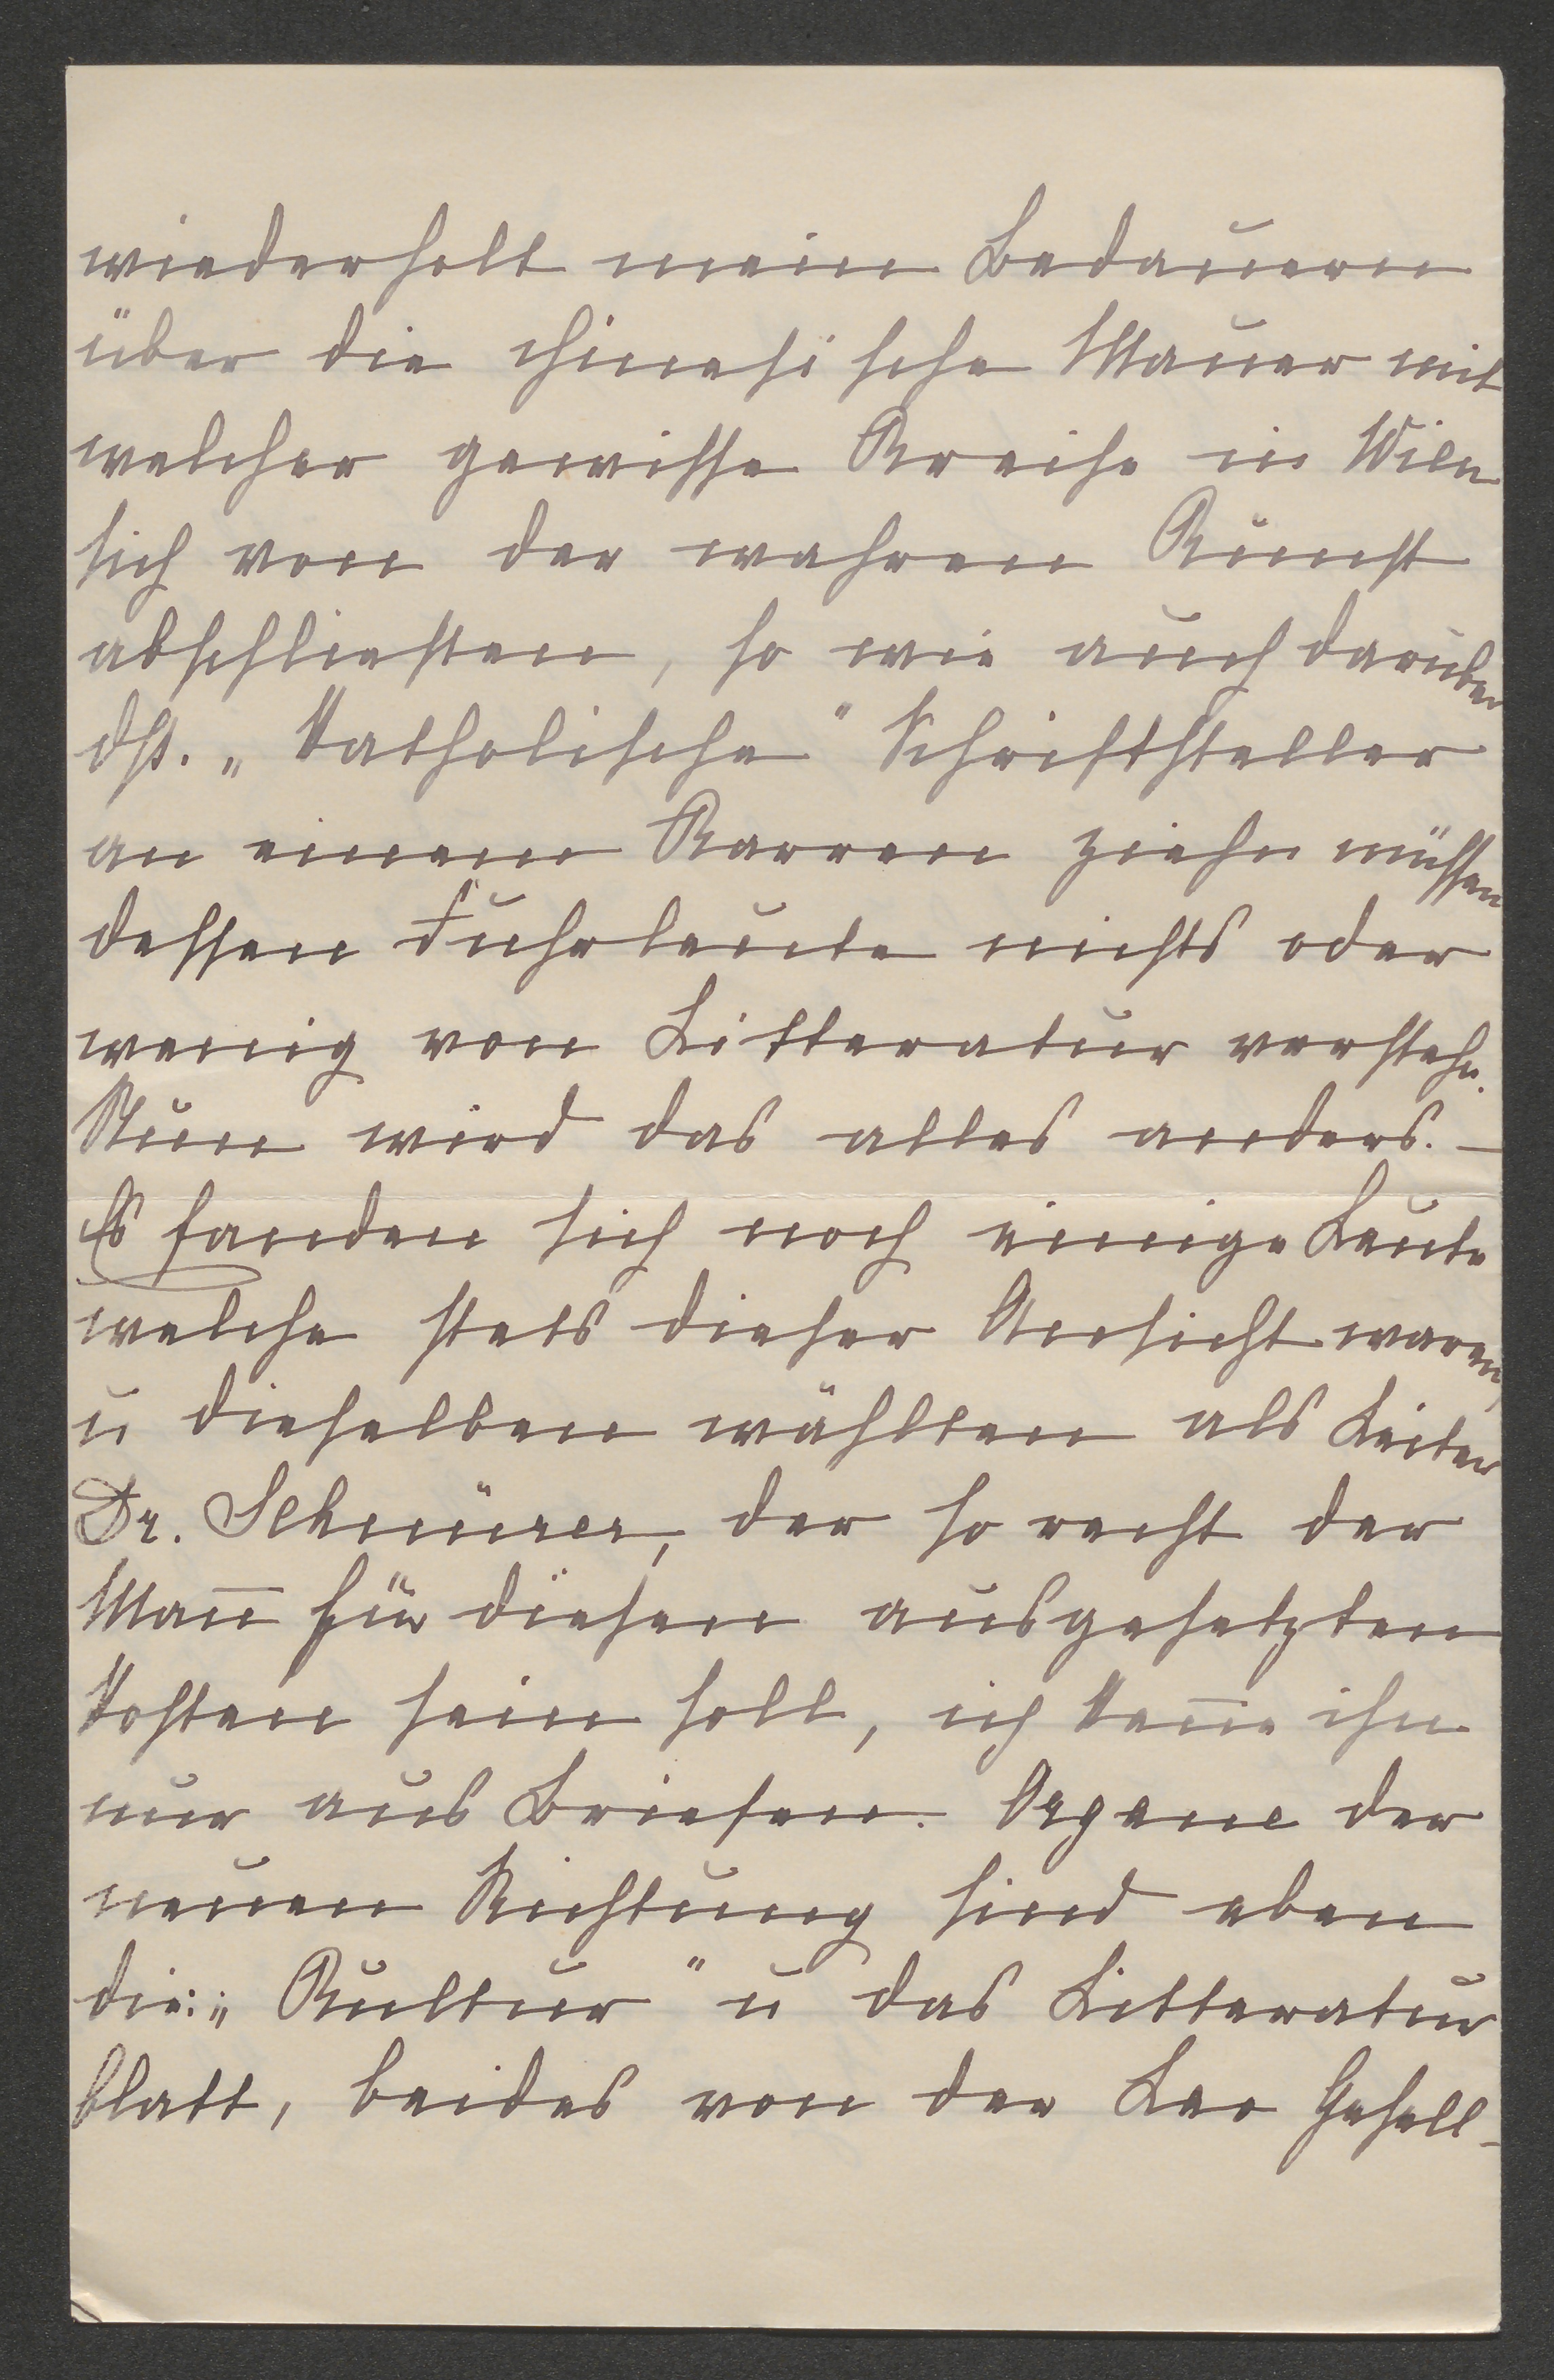 wiederholt mein Bedauern
über die chinesi sche Mauer mit
welcher gewisse Kreise in Wien
sich von der wahren Kunst
abschliesten, so wie auch darüber
dß. „katholische" Schriftsteller
an einem Karren ziehn müssen
dessen Fuhrleute nichts oder
wenig von Litteratur verstehn.
Nun wird das alles anders. —
Es fanden sich noch einige Leute
welche stets dieser Ansicht waren,
u dieselben wählten als Leiter
Dr. Schnürer, der so recht der
Man̅ für diesen ausgesetzten
Posten sein soll, ich ken̅e ihn
nur aus Briefen. Organe der
neuen Richtung sind eben
die: „Kultur" u das Litteratur
blatt, beides von der Leo Gesell-